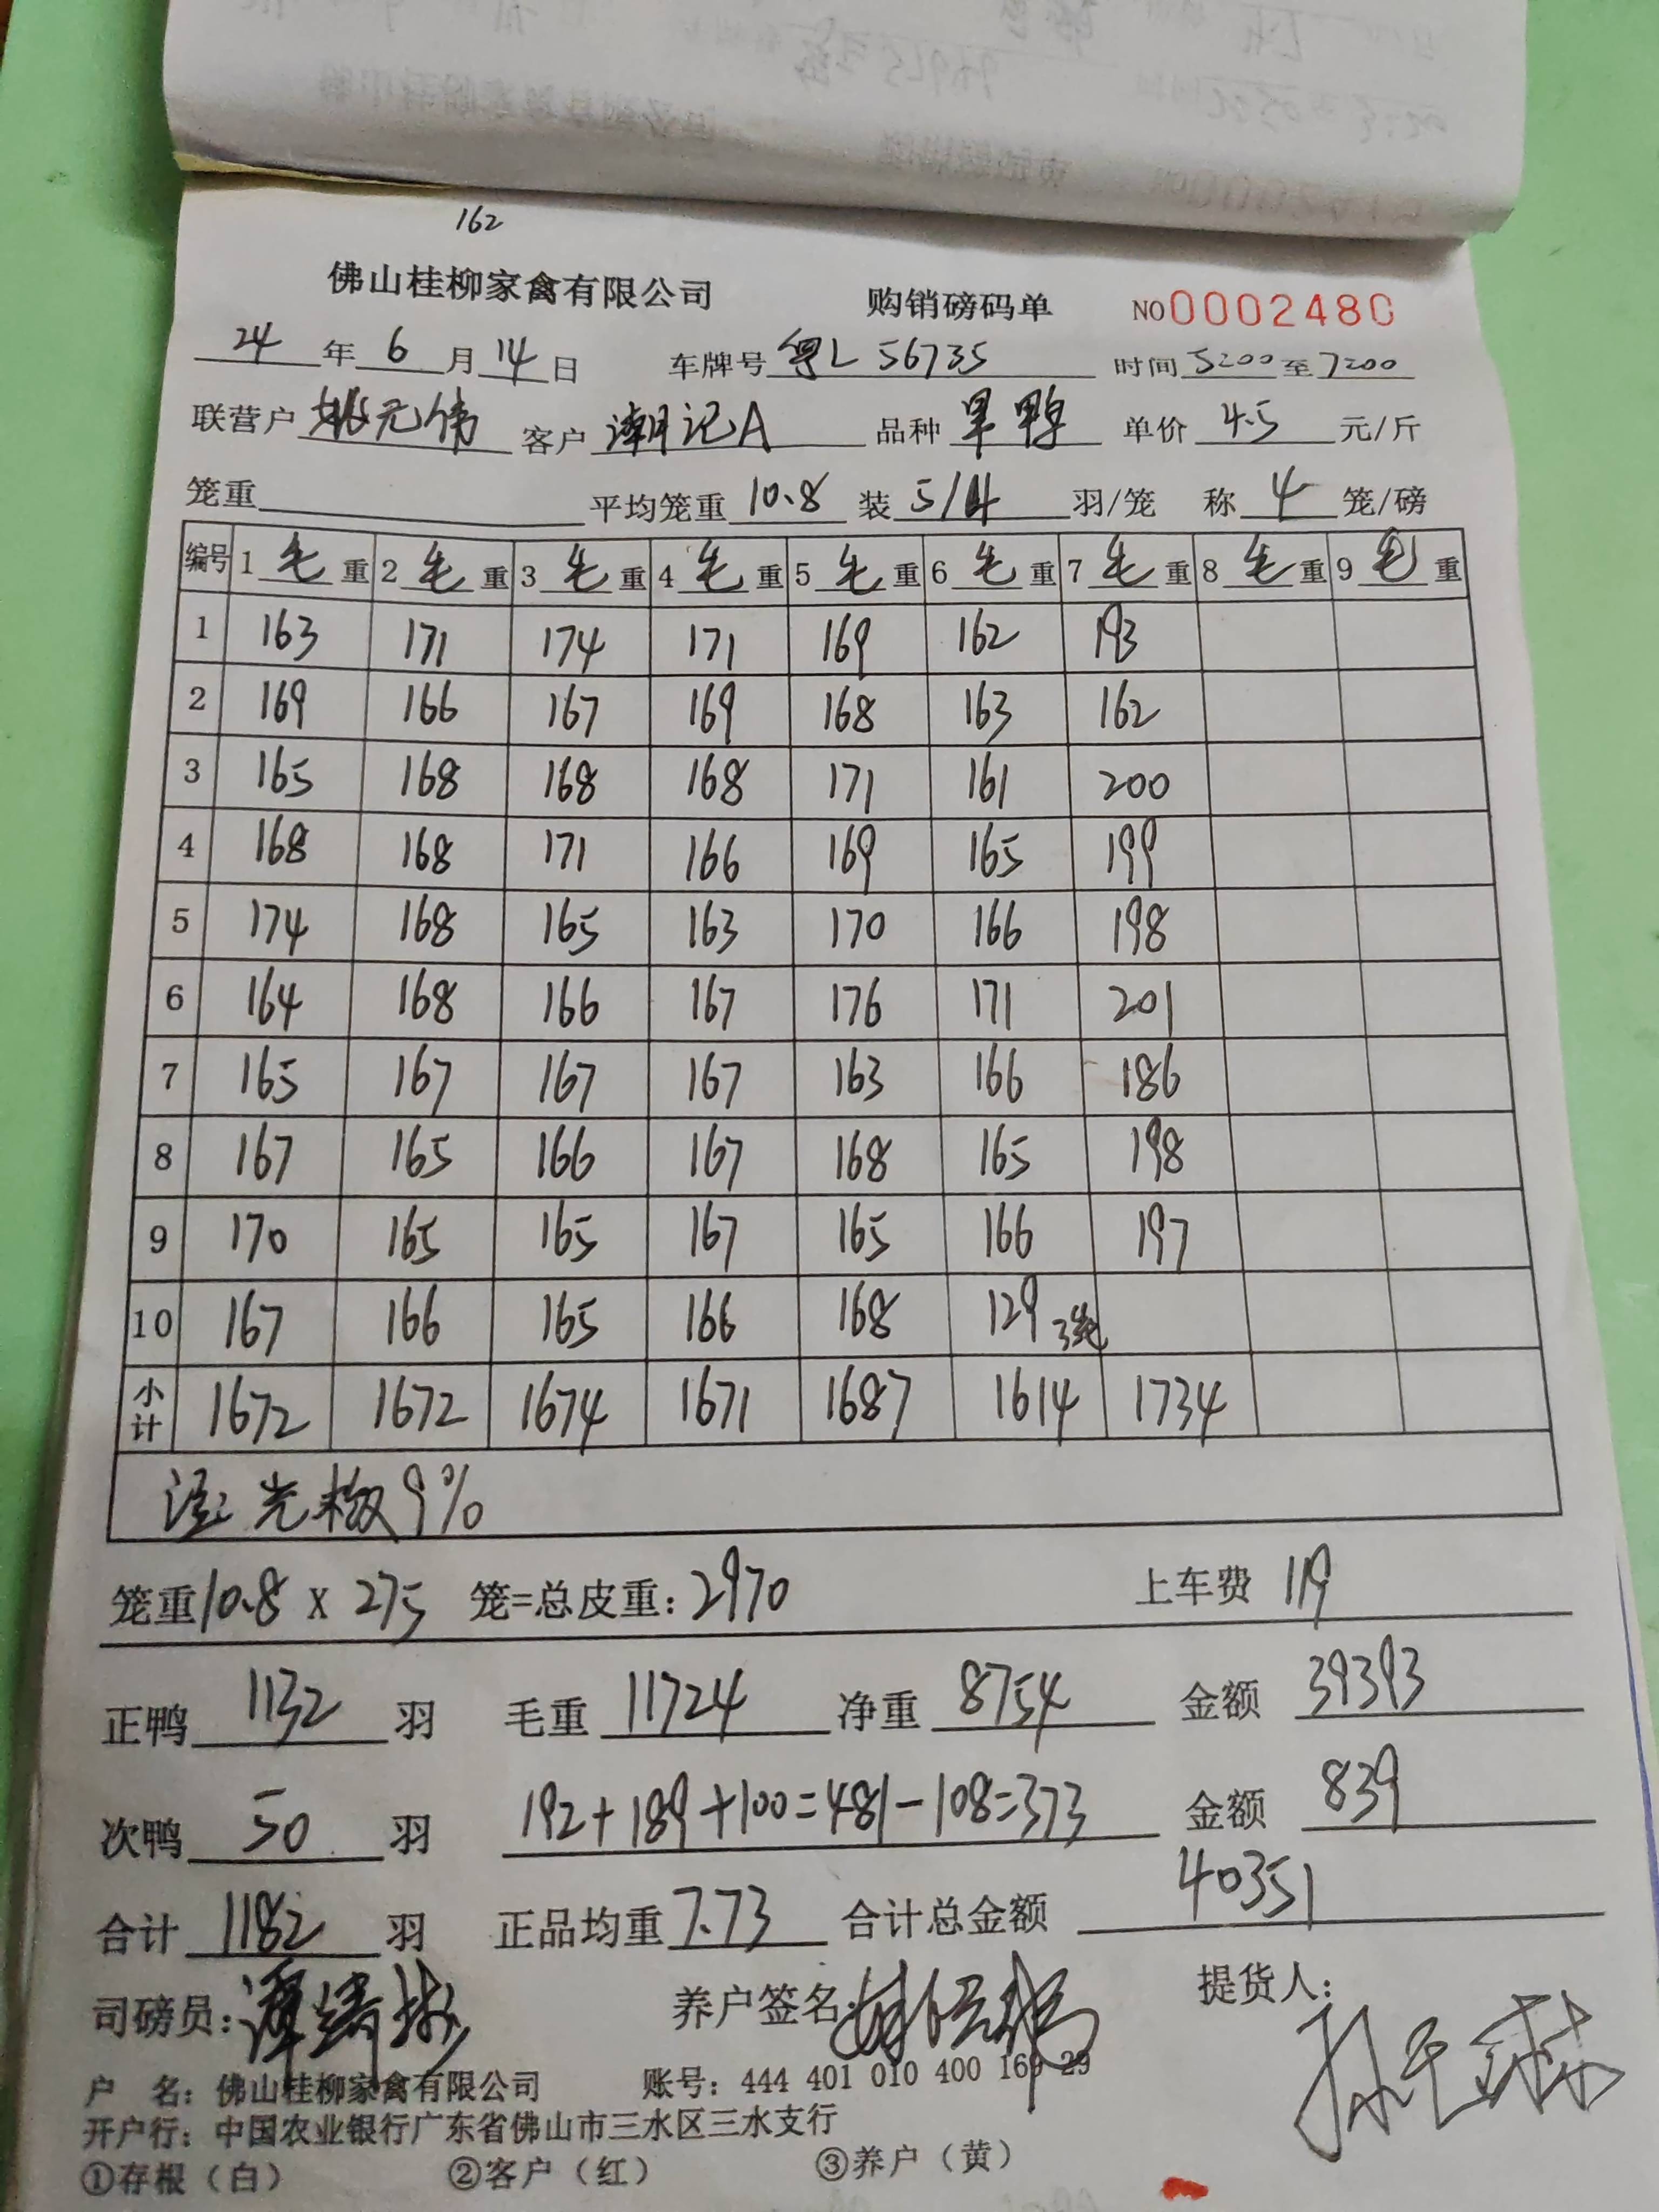 162
佛山桂柳家禽有限公司 购销磅码单 NO 0002480
24 年 6 月 14 日 车牌号 粤L 56735 时间 5200 至 7200
联营户 姚元伟 客户 潮记A 品种 旱鸭 单价 4.5 元/斤
笼重 平均笼重 10.8 装 5/4 羽/笼 称 4 笼/磅
编号 1 毛 重 2 毛 重 3 毛 重 4 毛 重 5 毛 重 6 毛 重 7 毛 重 8 毛 重 9 毛 重
1 163 171 174 171 169 162 193
2 169 166 167 169 168 163 162
3 165 168 168 168 171 161 200
4 168 168 171 166 169 165 199
5 174 168 165 163 170 166 198
6 164 168 166 167 176 171 201
7 165 167 167 167 163 166 186
8 167 165 166 167 168 165 198
9 170 165 165 167 165 166 197
10 167 166 165 166 168 129 3笼
小计 1672 1672 1674 1671 1687 1614 1734
9%
笼重 10.8 X 275 笼=总皮重: 2970 上车费 119
正鸭 1132 羽 毛重 11724 净重 8754 金额 39393
次鸭 50 羽 192+189+100=481-108=373 金额 839
合计 1182 羽 正品均重 7.73 合计总金额 40351
司磅员: 养户签名: 提货人:
户 名: 佛山桂柳家禽有限公司 账号: 444 401 010 400 169 29
开户行: 中国农业银行广东省佛山市三水区三水支行
①存根（白） ②客户（红） ③养户（黄）